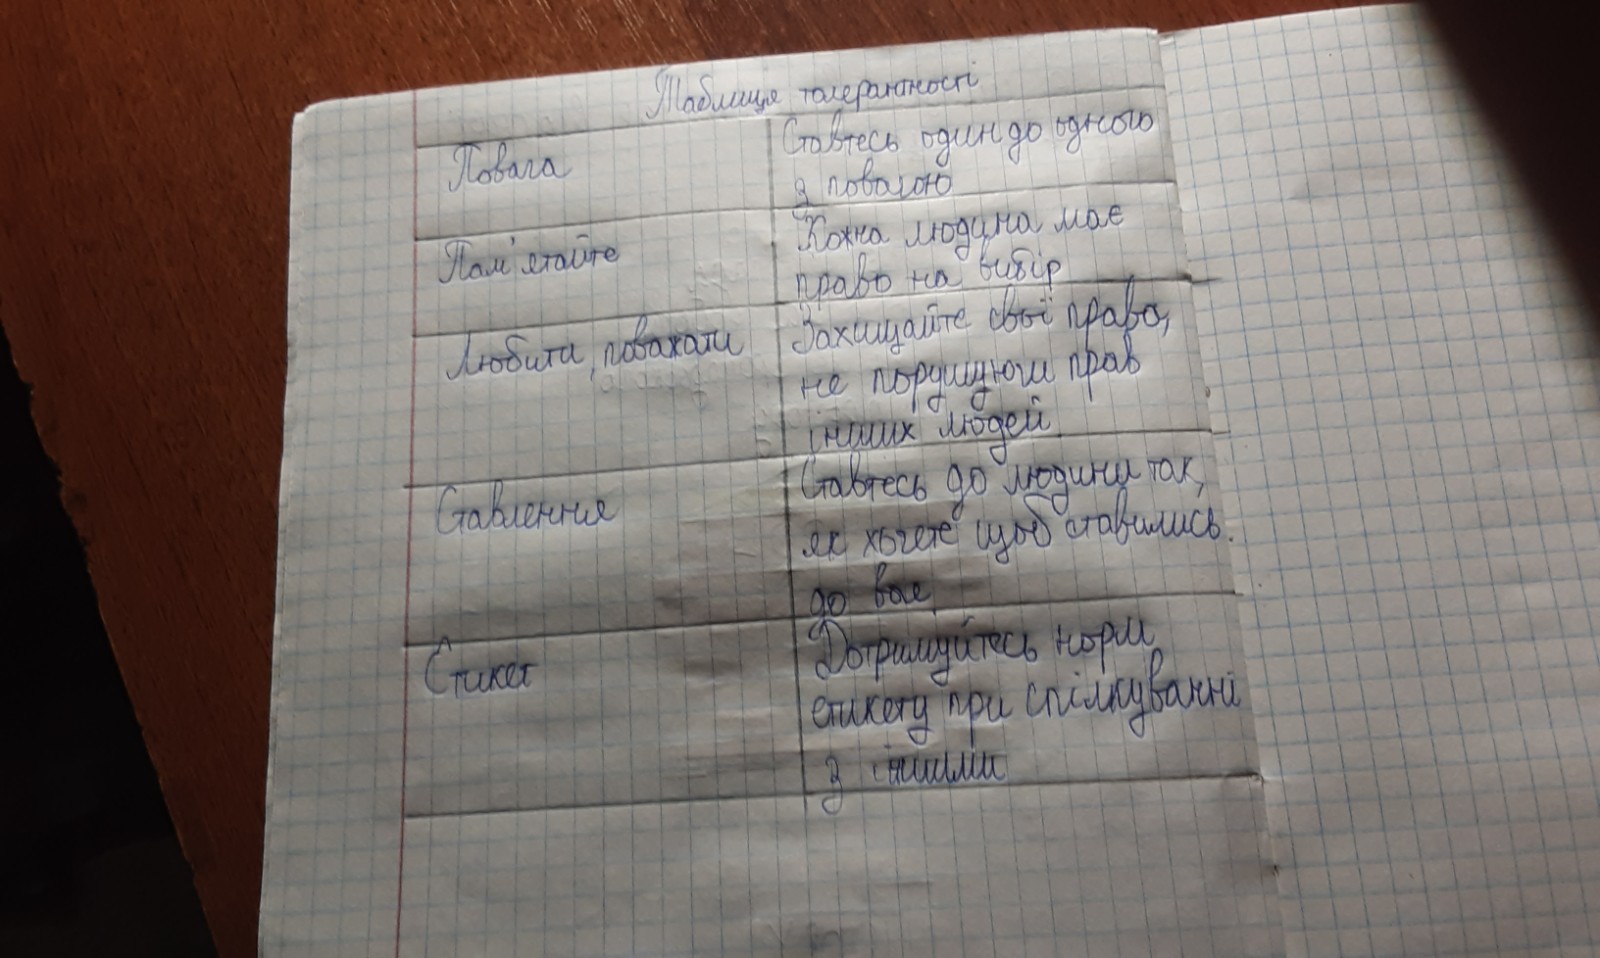 Таблиця толерантності
Повага
Ставтесь один до одного
з повагою
Пам'ятайте
Кожна людина має
право на вибір
Любити, поважати
Захищайте свої права,
не порушуючи прав
інших людей
Ставлення
Ставтесь до людини так,
як хочете щоб ставились
до вас
Етикет
Дотримуйтесь норм
етикету при спілкуванні
з іншими